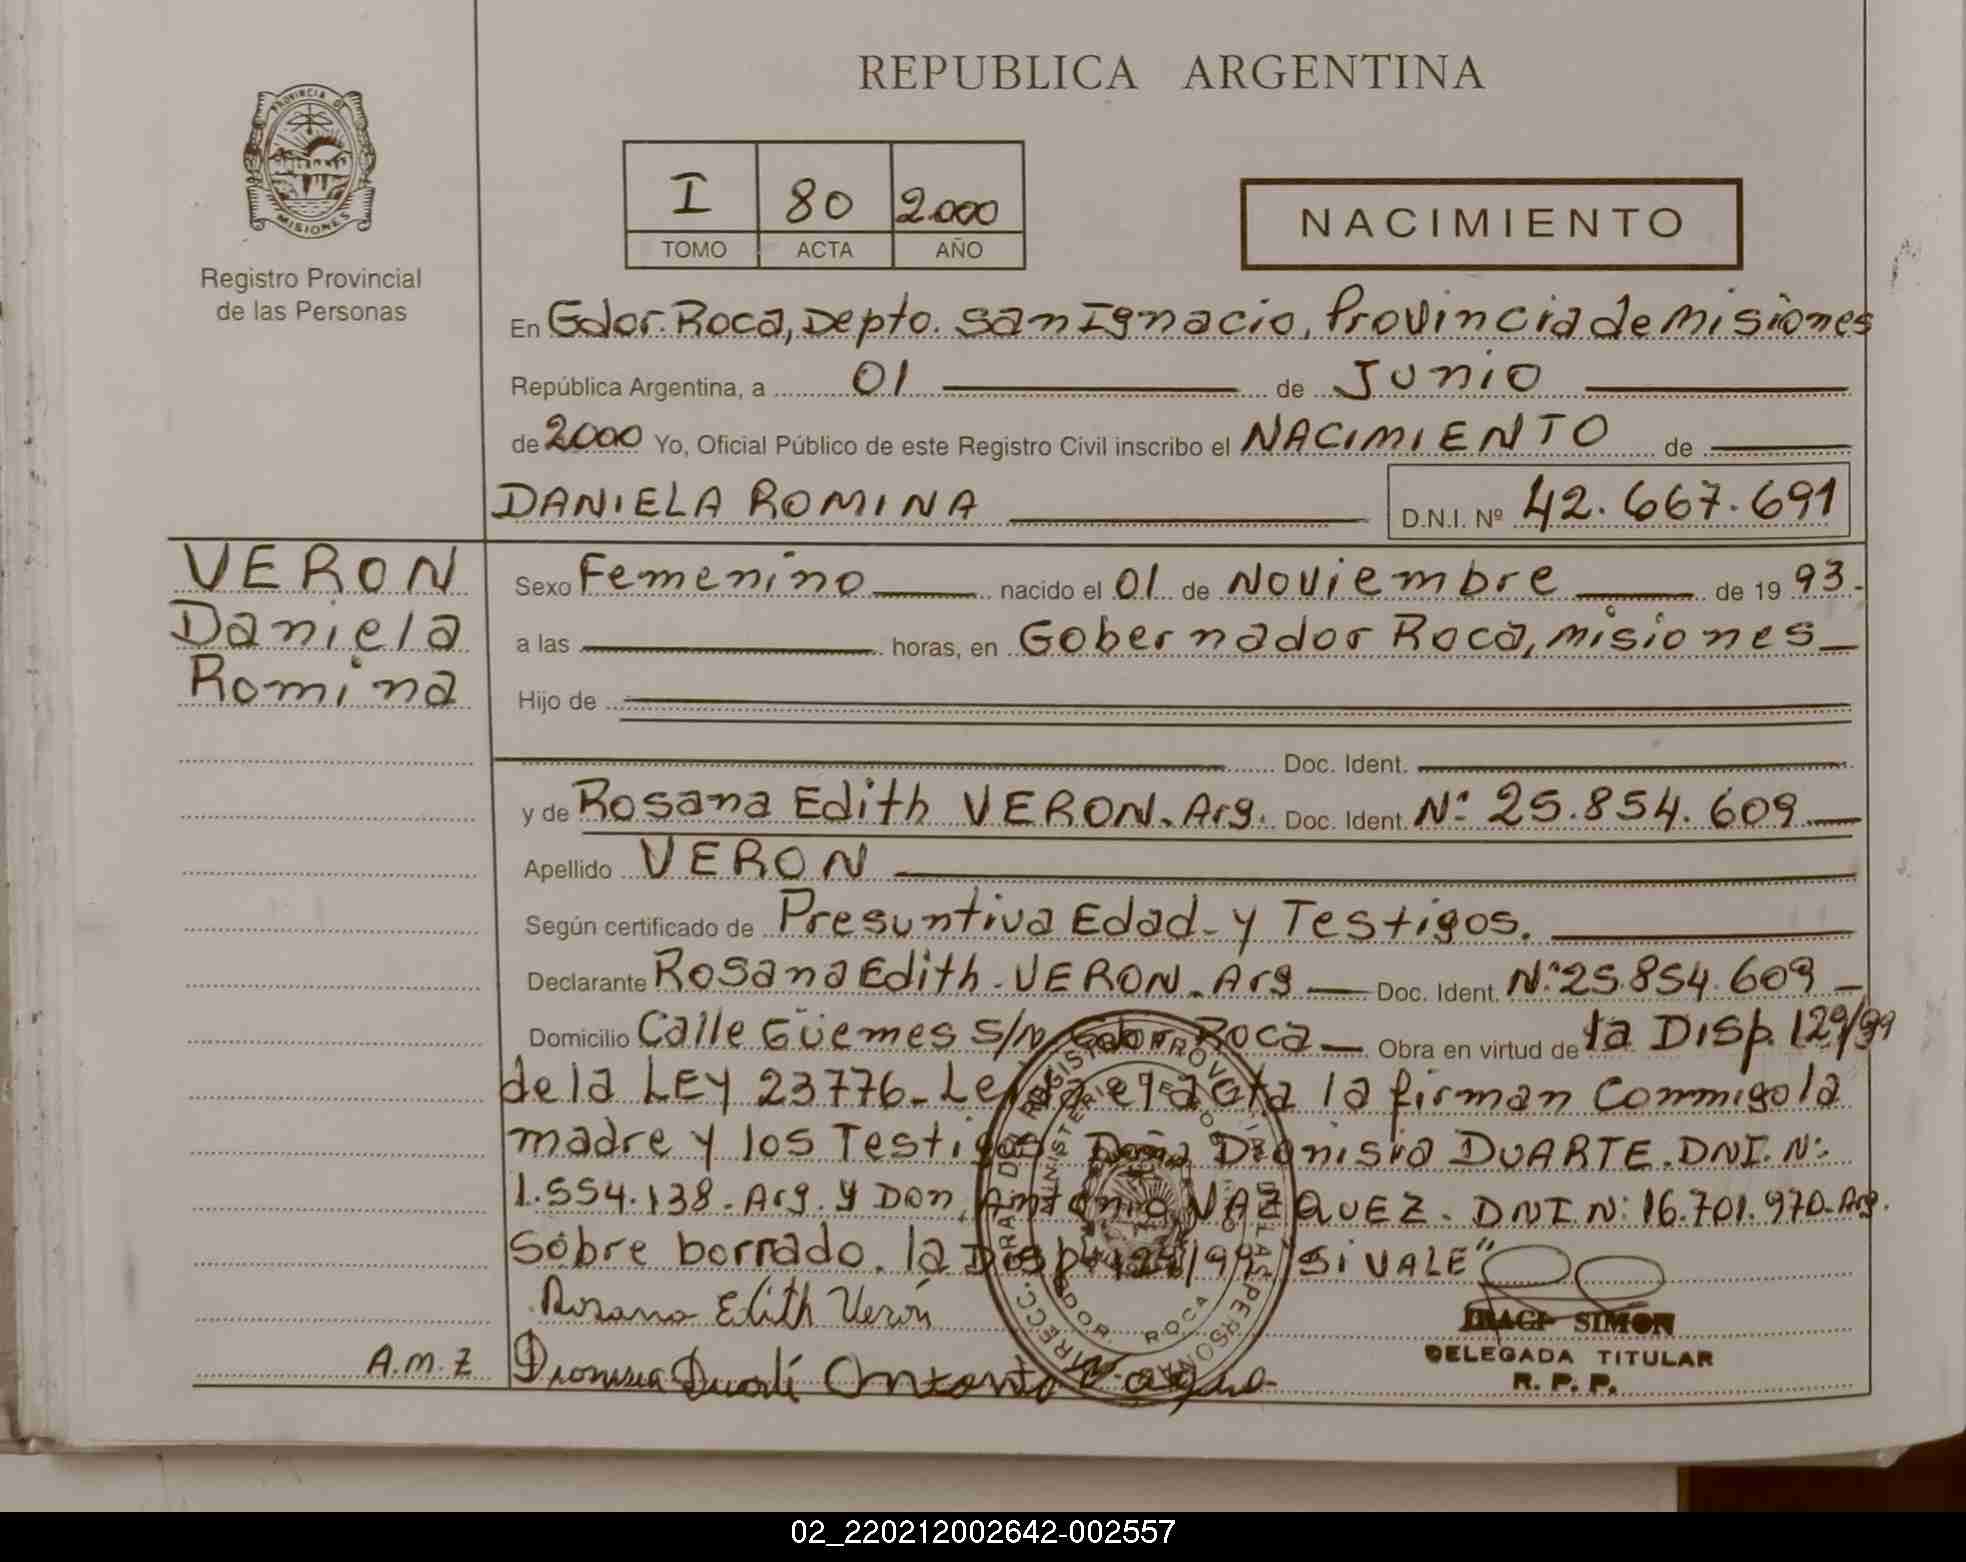 REPUBLICA ARGENTINA
PROVINCIA DE
MISIONES
Registro Provincial
de las Personas
I 80 2000
TOMO ACTA AÑO
NACIMIENTO
En Gdor. Roca, Depto. San Ignacio, Provincia de Misiones
República Argentina, a 01 de Junio
de 2000 Yo, Oficial Público de este Registro Civil inscribo el NACIMIENTO de
DANIELA ROMINA D.N.I. Nº 42.667.691
VERON
Daniela
Romina
Sexo Femenino nacido el 01 de Noviembre de 19 93.-
a las horas, en Gobernador Roca, misiones
Hijo de
Doc. Ident.
y de Rosana Edith VERON. Arg. Doc. Ident. Nº 25.854.609
Apellido VERON
Según certificado de Presuntiva Edad - y Testigos.
Declarante Rosana Edith - VERON - Arg Doc. Ident. Nº 25.854.609
Domicilio Calle Güemes s/n Gdor. Roca Obra en virtud de la Disp. 129/99
de la LEY 23776 - Leída el acta la firman conmigo la
madre y los Testigos Doña Dionisia DUARTE. DNI. Nº
1.554.138 - Arg. y Don Antonio VAZQUEZ. DNI Nº 16.701.970 - Arg.
Sobre borrado. la Disp. 129/99 "SI VALE"
Rosana Edith Verón
SIMON
DELEGADA TITULAR
R. P. P.
A.M.Z
Dionisia Duarte Antonio
GDOR. ROCA
02_220212002642-002557